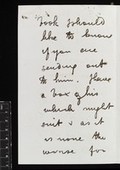 Book I should
like to know
if you are
sending out
to him. I have
a box of his
which might
suit & as it
is none the
worse for